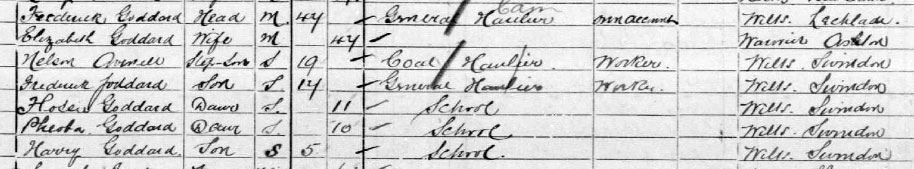 Cam
Frederick Goddard Head M. 47 General Haulier own account Wilts. Lechlade
Elizabeth Goddard Wife M 47 Warwick Aston
Nelson Step-Son S 19 Coal Haulier. Worker. Wilts Swindon
Fredrick Goddard Son S. 14 General Haulier Worker. Wilts. Swindon
Goddard Daur S. 11 School Wilts. Swindon
Pheobe Goddard Daur S 10 School Wilts. Swindon
Harry Goddard. Son S 5 School. Wilts. Swindon